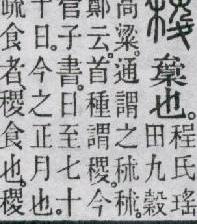 也。程氏瑤
田九穀
高粱。通謂之秫秫。
鄭云。首種謂稷。今
管子書。日至七十
十日。今之正月也。
疏食者。稷食也。稷